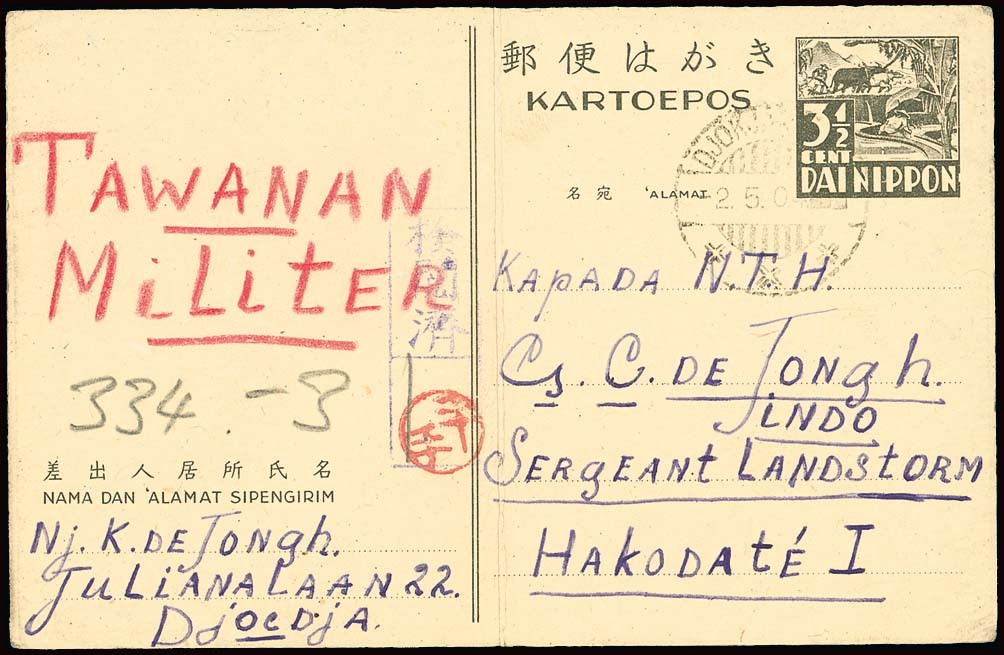 TAWANAN
MiLitER
334 - 3
差出人居所氏名
NAMA DAN 'ALAMAT SIPENGIRIM
Nj. K. DE Jongh.
JuLiANALAAN 22.
DjoeDjA.
郵便はがき
KARTOEPOS
3 1/2
CENT
DAI NIPPON
名宛 'ALAMAT
2.5.04
KApADA N.T.H.
Cs. C. DE Jongh.
iNDO
SERgEANt LANDStORM
HAKODAté I
検閲済